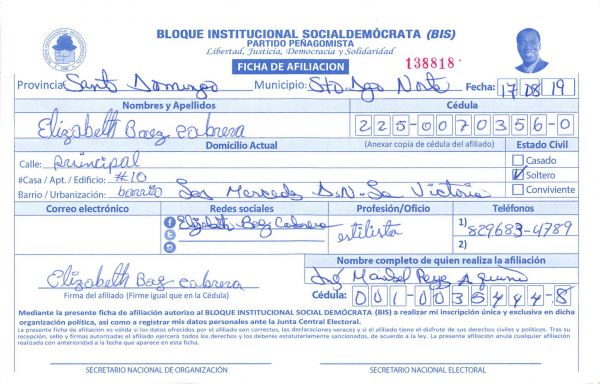 BLOQUE INSTITUCIONAL SOCIALDEMÓCRATA (BIS)
PARTIDO PEÑAGOMISTA
Libertad, Justicia, Democracia y Solidaridad
FICHA DE AFILIACION 138818
Provincia: Santo Domingo Municipio: Sto. Dgo Norte Fecha: 17 08 19
Nombres y Apellidos Cédula
Elizabeth Baez Cabrera 225-0070356-0
Domicilio Actual (Anexar copia de cédula del afiliado) Estado Civil
Calle: principal Casado
#Casa / Apt. / Edificio: #10 Soltero
Barrio / Urbanización: barrio Las Mercedes S.D.N - La Victoria Conviviente
Correo electrónico Redes sociales Profesión/Oficio Teléfonos
Elizabeth Baez Cabrera estilista 1) 829683-4789
2)
Nombre completo de quien realiza la afiliación
Elizabeth Baez Cabrera Ing Maribel
Firma del afiliado (Firme igual que en la Cédula) Cédula: 001-0035444-8
Mediante la presente ficha de afiliación autorizo al BLOQUE INSTITUCIONAL SOCIAL DEMÓCRATA (BIS) a realizar mi inscripción única y exclusiva en dicha
organización política, así como a registrar mis datos personales ante la Junta Central Electoral.
La presente ficha de afiliación es válida si los datos ofrecidos por el afiliado son correctos, las declaraciones veraces y si el afiliado tiene el disfrute de sus derechos civiles y políticos. Tras su
recepción, sello y firmas autorizadas el afiliado ejercerá todos los derechos y los deberes estatutariamente sancionados, de acuerdo a la ley. La presente afiliación anula cualquier afiliación
realizada con anterioridad a la fecha que aparece en esta ficha.
SECRETARIO NACIONAL DE ORGANIZACIÓN SECRETARIO NACIONAL ELECTORAL